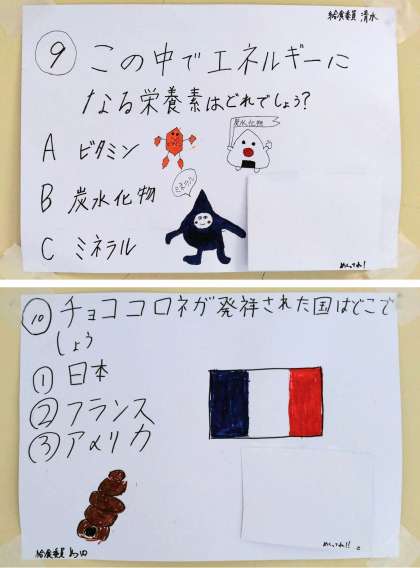 給食委員 清水
⑨ この中でエネルギーに
なる栄養素はどれでしょう?
A ビタミン
炭水化物
B 炭水化物
ミネラル
C ミネラル
めくってね!
⑩ チョココロネが発祥された国はどこで
しょう
① 日本
② フランス
③ アメリカ
給食委員
めくってね!!